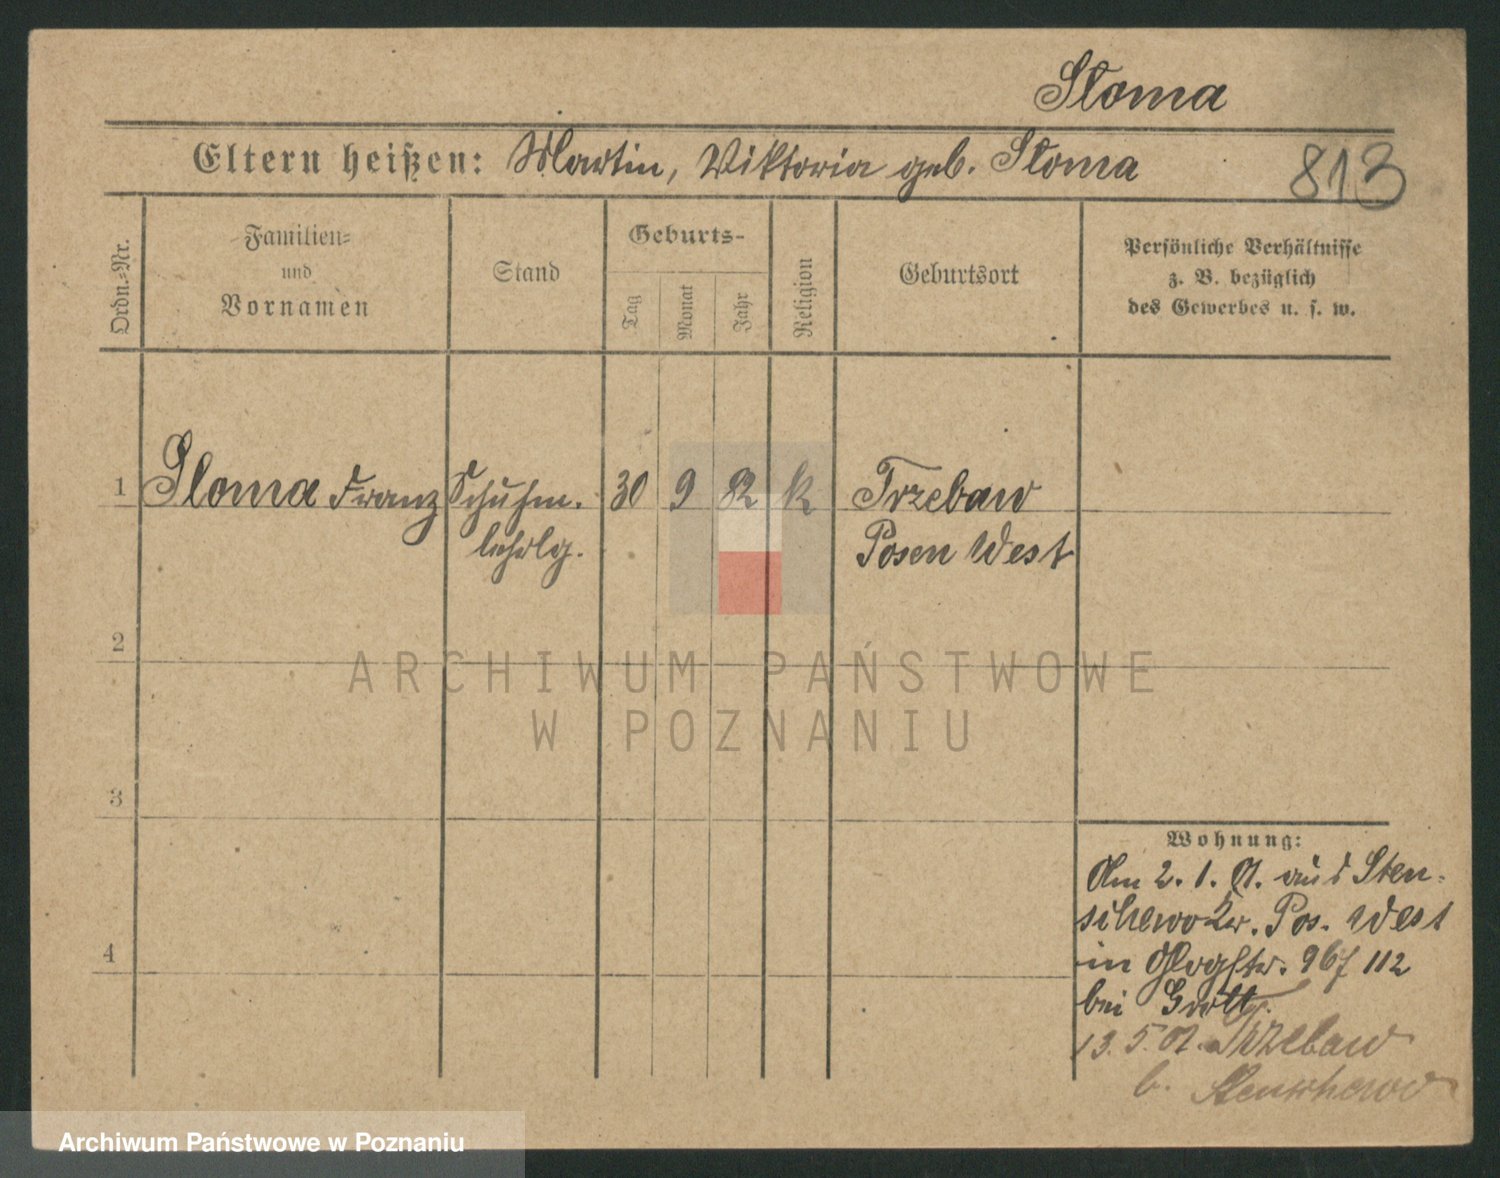 Sloma
Eltern heißen: Martin, Viktoria geb. Sloma
813
Ordn.-Nr.
Familien-
und
Vornamen
Stand
Geburts-
Tag
Monat
Jahr
Religion
Geburtsort
Persönliche Verhältnisse
z. B. bezüglich
des Gewerbes u. s. w.
1 Sloma Franz Schuhm. 30 9 82 k Trzebaw
lehrlg. Posen West
2
ARCHIWUM PAŃSTWOWE
W POZNANIU
3
Wohnung:
Am 2. 1. 01. aus Sten-
schewo Kr. Pos. West
4
in Glogstr. 96/ 112
bei Grott.
13. 5. 01. Trzebaw
b. Stenschewo
Archiwum Państwowe w Poznaniu